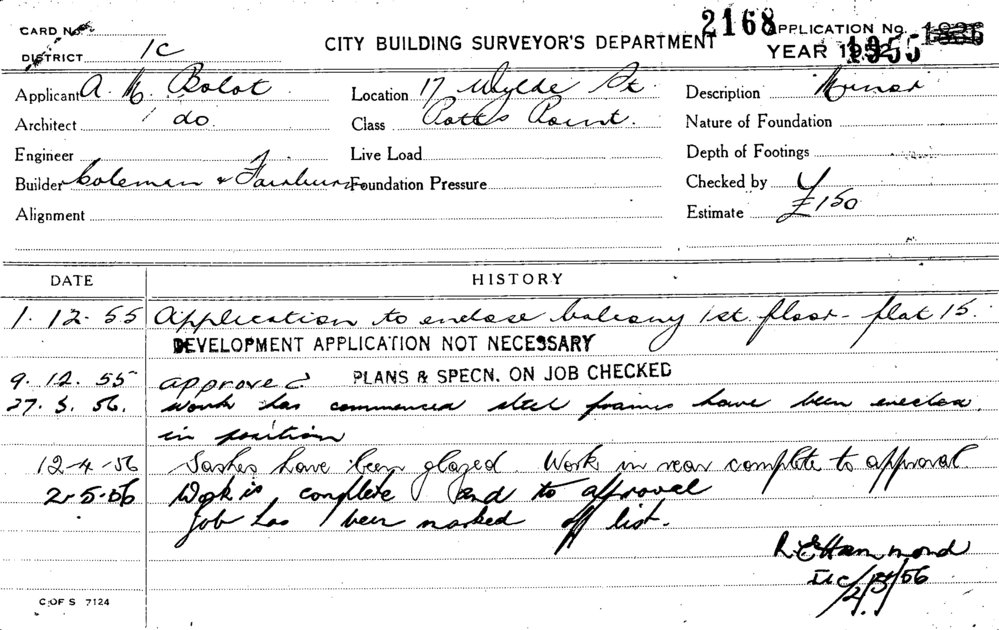 CARD No.
DISTRICT 1C
CITY BUILDING SURVEYOR'S DEPARTMENT
2168
APPLICATION No. 1836
YEAR 1955
Applicant A. M. Bolot
Location 17 Wylde St
Description Minor
Architect do.
Class Potts Point.
Nature of Foundation
Engineer
Live Load
Depth of Footings
Builder Coleman & Fairburn
Foundation Pressure
Checked by
Alignment
Estimate £150
DATE HISTORY
1. 12. 55 Application to enclose balcony 1st floor - flat 15.
DEVELOPMENT APPLICATION NOT NECESSARY
9. 12. 55 approved PLANS & SPECN. ON JOB CHECKED
27. 3. 56. work has commenced steel frames have been erected
in position
12-4-56 Sashes have been glazed. Work in near complete to approval
2-5-56 Work is complete and to approval
Job has been marked off list.
R E Hammond
2/5/56
C OF S 7124